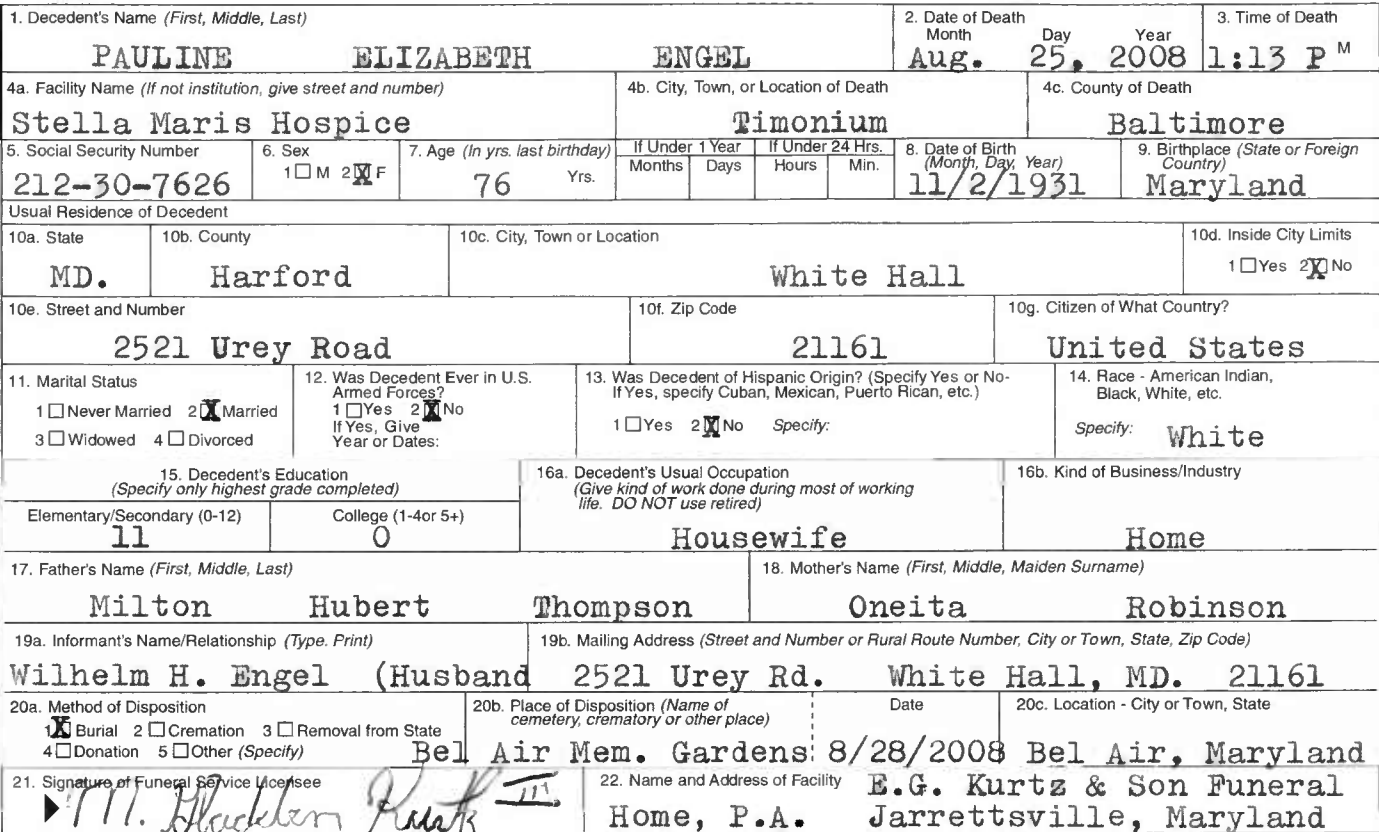 1. Decedent's Name (First, Middle, Last)
PAULINE ELIZABETH ENGEL
2. Date of Death
Month Day Year
Aug. 25, 2008
3. Time of Death
1:13 P M
4a. Facility Name (If not institution, give street and number)
Stella Maris Hospice
4b. City, Town, or Location of Death
Timonium
4c. County of Death
Baltimore
5. Social Security Number
212-30-7626
6. Sex
1☐ M 2☒ F
7. Age (In yrs. last birthday)
76 Yrs.
If Under 1 Year
Months Days
If Under 24 Hrs.
Hours Min.
8. Date of Birth
(Month, Day, Year)
11/2/1931
9. Birthplace (State or Foreign
Country)
Maryland
Usual Residence of Decedent
10a. State
MD.
10b. County
Harford
10c. City, Town or Location
White Hall
10d. Inside City Limits
1☐Yes 2☒No
10e. Street and Number
2521 Urey Road
10f. Zip Code
21161
10g. Citizen of What Country?
United States
11. Marital Status
1☐Never Married 2☒Married
3☐Widowed 4☐Divorced
12. Was Decedent Ever in U.S.
Armed Forces?
1☐Yes 2☒No
If Yes, Give
Year or Dates:
13. Was Decedent of Hispanic Origin? (Specify Yes or No-
If Yes, specify Cuban, Mexican, Puerto Rican, etc.)
1☐Yes 2☒No Specify:
14. Race - American Indian,
Black, White, etc.
Specify: White
15. Decedent's Education
(Specify only highest grade completed)
Elementary/Secondary (0-12)
11
College (1-4or 5+)
0
16a. Decedent's Usual Occupation
(Give kind of work done during most of working
life. DO NOT use retired)
Housewife
16b. Kind of Business/Industry
Home
17. Father's Name (First, Middle, Last)
Milton Hubert Thompson
18. Mother's Name (First, Middle, Maiden Surname)
Oneita Robinson
19a. Informant's Name/Relationship (Type. Print)
Wilhelm H. Engel (Husband
19b. Mailing Address (Street and Number or Rural Route Number, City or Town, State, Zip Code)
2521 Urey Rd. White Hall, MD. 21161
20a. Method of Disposition
1☒Burial 2☐Cremation 3☐Removal from State
4☐Donation 5☐Other (Specify)
20b. Place of Disposition (Name of
cemetery, crematory or other place)
Bel Air Mem. Gardens
Date
8/28/2008
20c. Location - City or Town, State
Bel Air, Maryland
21. Signature of Funeral Service Licensee
M. Gladden Kurtz III
22. Name and Address of Facility
E.G. Kurtz & Son Funeral
Home, P.A. Jarrettsville, Maryland